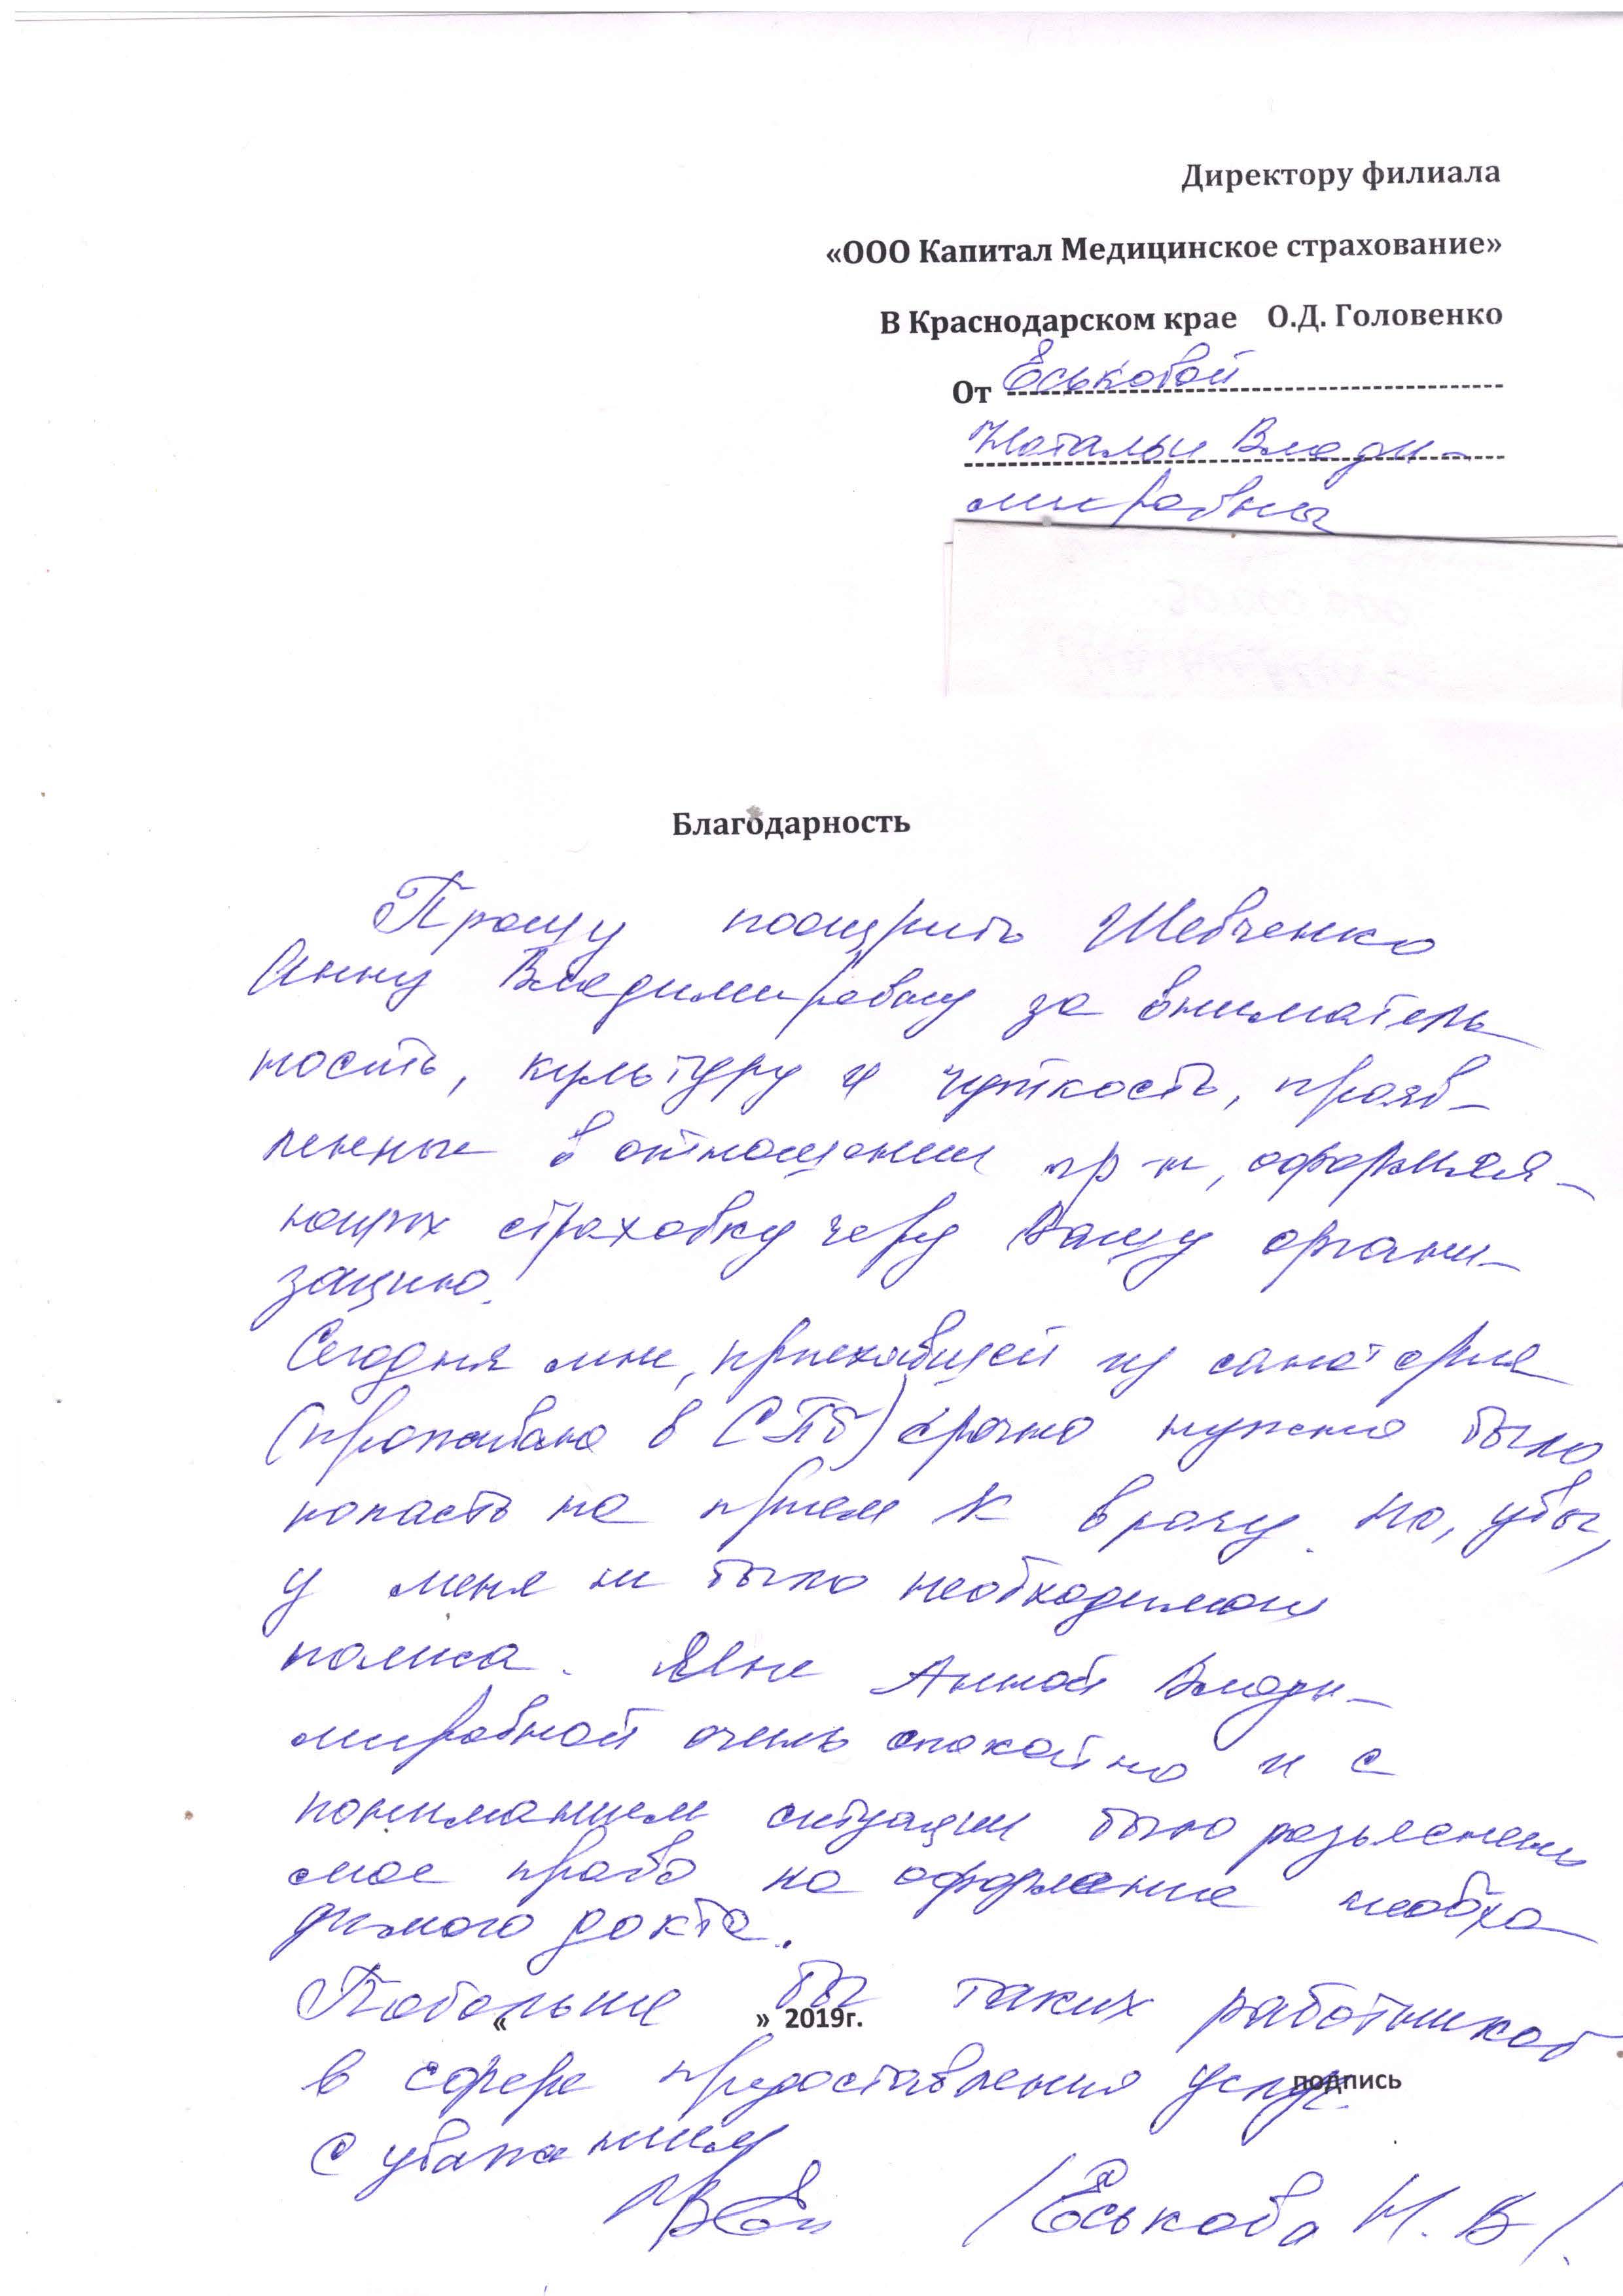 Директору филиала
«ООО Капитал Медицинское страхование»
В Краснодарском крае О.Д. Головенко
От Еськовой
Натальи Влади-
мировны
Благодарность
Прошу поощрить Шевченко
Анну Владимировну за вниматель
ность, культуру и чуткость, прояв-
ленные в отношении гр-н, оформля-
ющих страховку через Вашу органи-
зацию.
Сегодня мне, приехавшей из санатория
(проживаю в СПб) срочно нужно было
попасть на прием к врачу. Но, увы,
у меня не было необходимого
полиса. Мне Анной Влади-
мировной очень спокойно и с
пониманием ситуации было разъяснено
мое право на оформление необхо
димого док-та.
Побольше бы таких работников
« » 2019г.
в сфере предоставления услуг.
подпись
С уважением
/Еськова Н.В/.